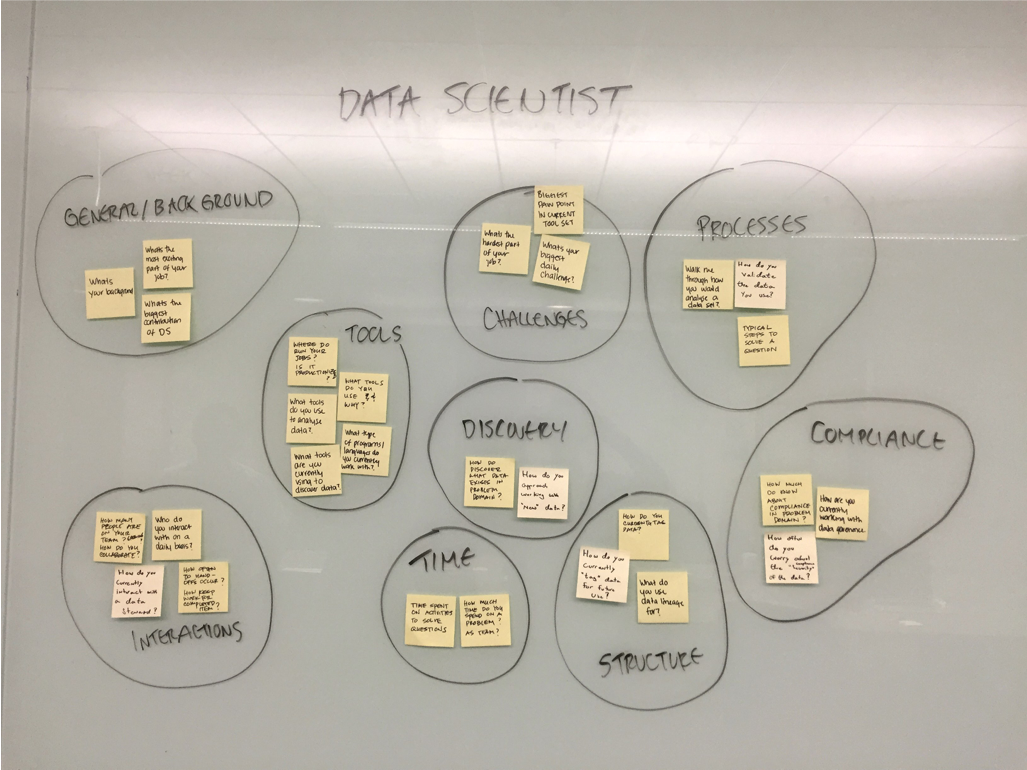 DATA SCIENTIST
GENERAL/BACKGROUND
Whats the
most exciting
part of your
job?
Whats
your background
Whats the
biggest
contribution
of DS
BIGGEST
PAIN POINT
IN CURRENT
TOOL SET
Whats the
hardest part
of your
job?
Whats your
biggest
daily
challenge?
CHALLENGES
PROCESSES
Walk me
through how
you would
analyse a
data set?
How do you
validate
the data
you use?
TYPICAL
STEPS TO
SOLVE A
QUESTION
TOOLS
WHERE DO
RUN YOUR
JOBS?
IS IT
WHAT TOOLS
DO YOU
USE &
WHY?
What tools
do you use
to analyse
data?
What type
of programs/
languages do
you currently
work with?
What tools
are you
currently
using to
discover data?
DISCOVERY
HOW DO
DISCOVER
WHAT DATA
EXISTS IN
PROBLEM
DOMAIN?
How do you
approach
working with
"new" data?
COMPLIANCE
HOW MUCH
DO KNOW
ABOUT
COMPLIANCE
IN PROBLEM
DOMAIN?
How are you
currently
working with
data
How often
do you
worry about
the
of the data?
HOW MANY
PEOPLE ARE
ON YOUR
TEAM?
HOW DO YOU
COLLABORATE?
Who do
you interact
with on a
daily basis?
How do you
currently
interact with
a data
steward?
HOW OFTEN
DO HAND-
OFFS OCCUR?
HOW KEEP
COMPLETED?
ITEM
INTERACTIONS
TIME
TIME SPENT
ON ACTIVITIES
TO SOLVE
QUESTIONS
HOW MUCH
TIME DO YOU
SPEND ON A
PROBLEM?
AS TEAM?
HOW DO YOU
DATA?
How do you
currently
"tag" data
for future
use?
What do
you use
data lineage
for?
STRUCTURE